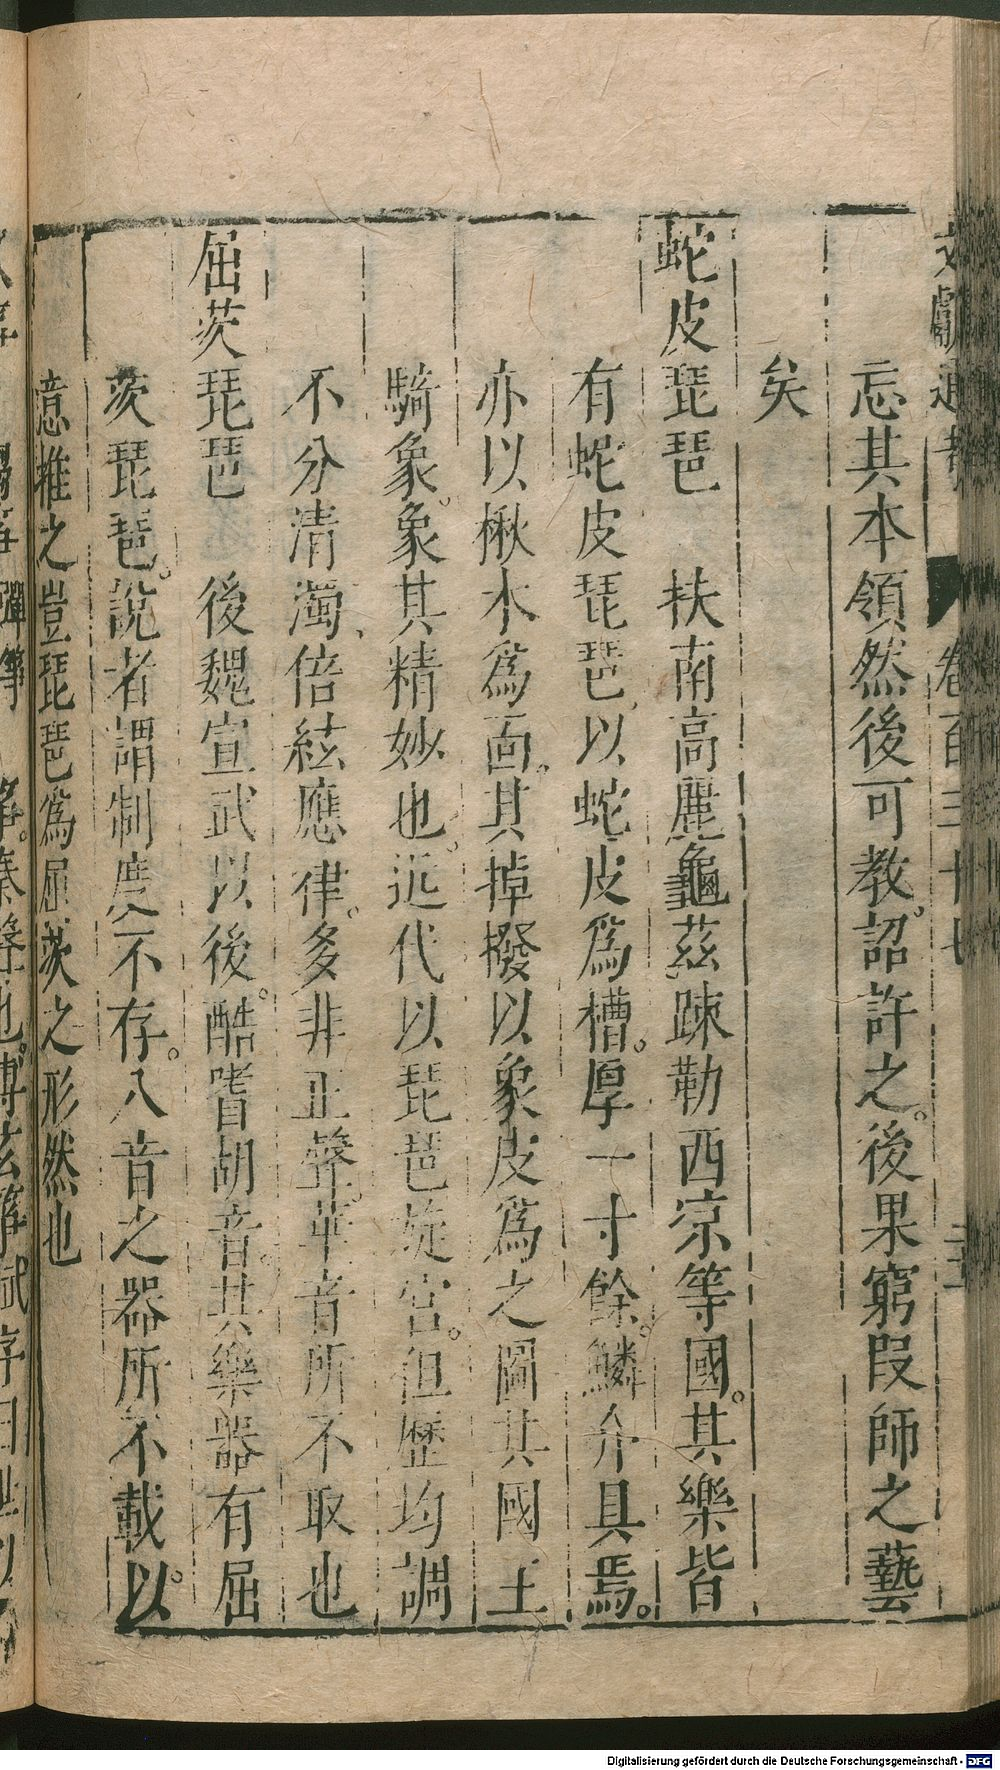 文獻通考 卷百三十七
忘其本領然後可教詔許之後果窮叚師之藝
矣
蛇皮琵琶 扶南高麗龜茲踈勒西凉等國其樂皆
有蛇皮琵琶以蛇皮爲槽厚一寸餘鱗介具焉
亦以楸木爲面其捍撥以象皮爲之圖其國王
騎象象其精妙也近代以琵琶旋宫但歷均調
不分清濁倍絃應律多非正聲華音所不取也
屈茨琵琶 後魏宣武以後酷嗜胡音其樂器有屈
茨琵琶說者謂制度不存八音之器所不載以
意推之豈琵琶爲屈茨之形然也
Digitalisierung gefördert durch die Deutsche Forschungsgemeinschaft - DFG